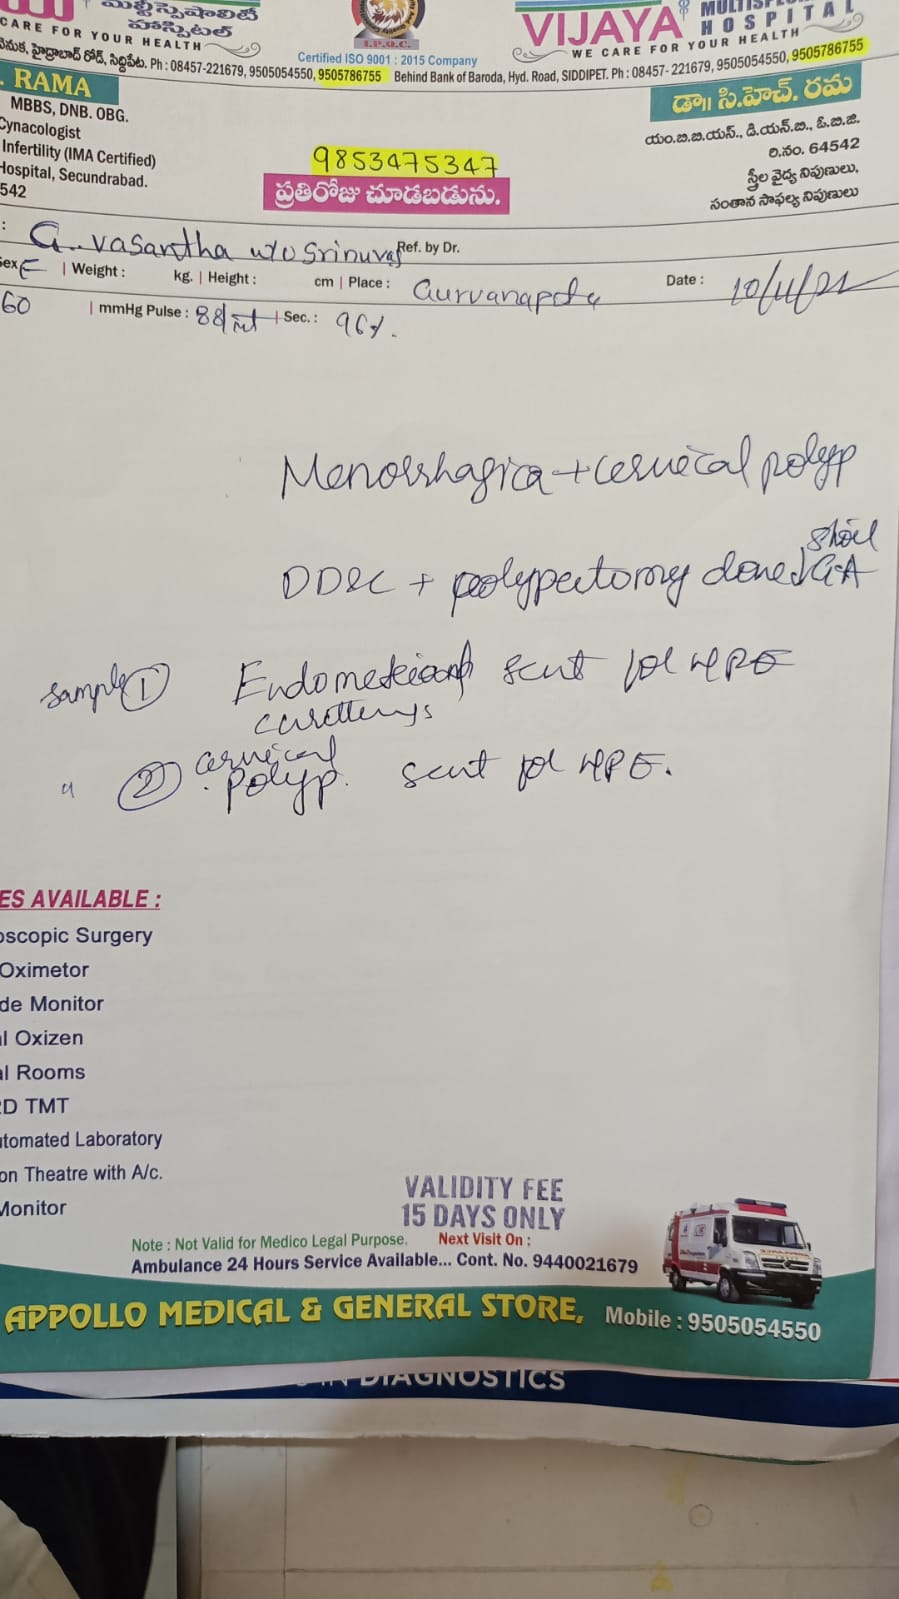 మల్టీస్పెషాలిటీ
హాస్పిటల్
CARE FOR YOUR HEALTH
హైద్రాబాద్ రోడ్, సిద్దిపేట. Ph : 08457-221679, 9505054550, 9505786755
I.P.Q.C.
Certified ISO 9001 : 2015 Company
VIJAYA
HOSPITAL
WE CARE FOR YOUR HEALTH
Behind Bank of Baroda, Hyd. Road, SIDDIPET. Ph : 08457- 221679, 9505054550, 9505786755
. RAMA
MBBS, DNB. OBG.
Gynacologist
Infertility (IMA Certified)
Hospital, Secundrabad.
542
9853475347
ప్రతిరోజు చూడబడును.
డా|| సి.హెచ్. రమ
యం.బి.బి.యస్., డి.యన్.బి., ఓ.బి.జి.
రి.నం. 64542
స్త్రీల వైద్య నిపుణులు,
సంతాన సాఫల్య నిపుణులు
: G. Vasantha w/o Srinuvas Ref. by Dr.
Sex F | Weight : kg. | Height : cm | Place : Date :
60 | mmHg Pulse : 88/mt | Sec. : 96%.
Menorrhagica + cervical polyp
DD&C + polypectomy done ↓ GA
Sample ① Endometrial sent for HPE
curettings
" ② cervical
polyp. sent for HPE.
ES AVAILABLE :
oscopic Surgery
Oximetor
de Monitor
l Oxizen
al Rooms
2D TMT
utomated Laboratory
on Theatre with A/c.
Monitor
VALIDITY FEE
15 DAYS ONLY
Note : Not Valid for Medico Legal Purpose. Next Visit On :
Ambulance 24 Hours Service Available... Cont. No. 9440021679
APPOLLO MEDICAL & GENERAL STORE, Mobile : 9505054550
DIAGNOSTICS